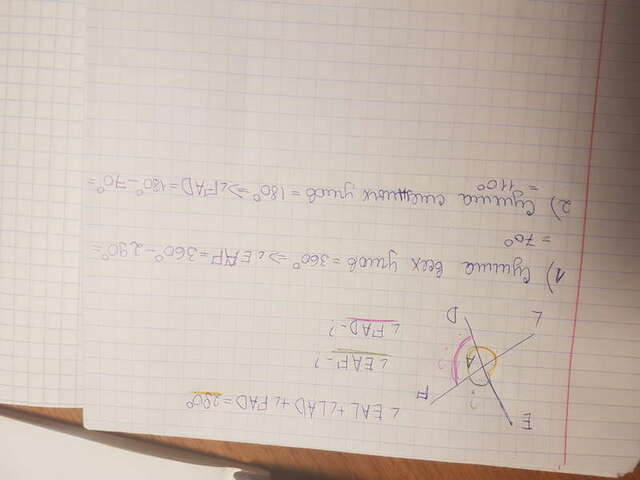 ∠EAL + ∠LAD + ∠FAD = 290°
∠EAF - ?
∠FAD - ?
E
?
F
A
?
L
D
1) Сумма всех углов = 360° => ∠EAF = 360° - 290° =
= 70°
2) Сумма смежных углов = 180° => ∠FAD = 180° - 70° =
= 110°